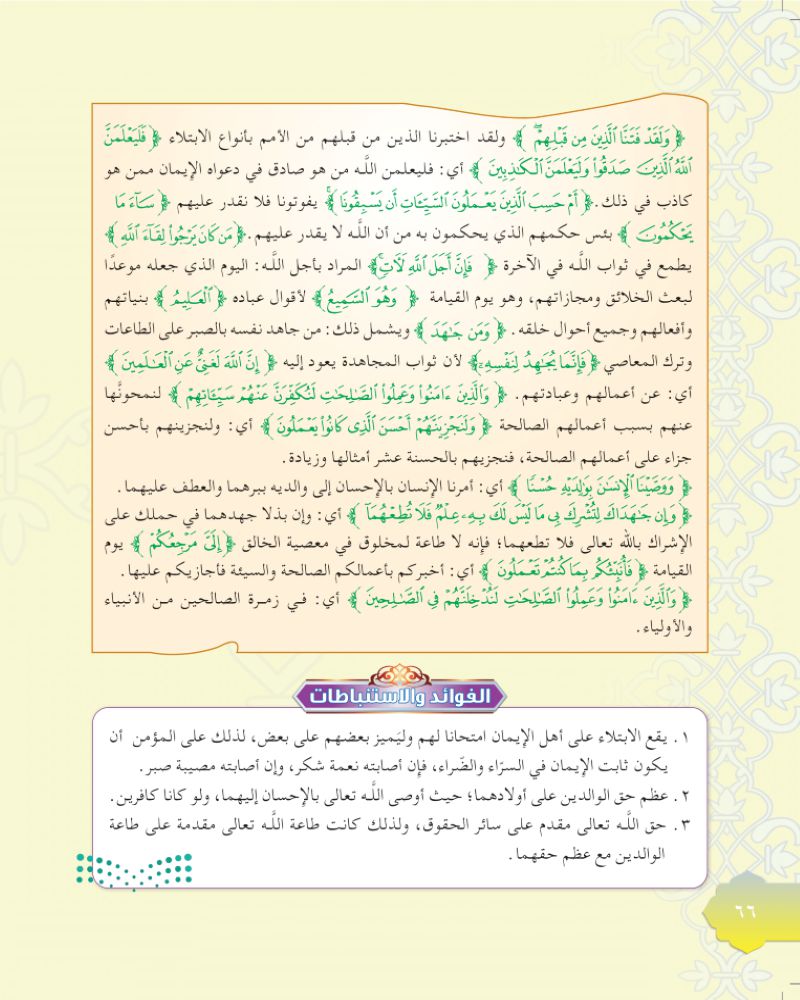 ﴿ وَلَقَدْ فَتَنَّا الَّذِينَ مِن قَبْلِهِمْ ۖ ﴾ ولقد اختبرنا الذين من قبلهم من الأمم بأنواع الابتلاء ﴿ فَلَيَعْلَمَنَّ
اللَّهُ الَّذِينَ صَدَقُوا۟ وَلَيَعْلَمَنَّ الْكَٰذِبِينَ ﴾ أي: فليعلمن اللَّه من هو صادق في دعواه الإيمان ممن هو
كاذب في ذلك. ﴿ أَمْ حَسِبَ الَّذِينَ يَعْمَلُونَ السَّيِّئَاتِ أَن يَسْبِقُونَا ۚ ﴾ يفوتونا فلا نقدر عليهم ﴿ سَآءَ مَا
يَحْكُمُونَ ﴾ بئس حكمهم الذي يحكمون به من أن اللَّه لا يقدر عليهم. ﴿ مَن كَانَ يَرْجُوا۟ لِقَآءَ اللَّهِ ﴾
يطمع في ثواب اللَّه في الآخرة ﴿ فَإِنَّ أَجَلَ اللَّهِ لَآتٍ ۚ ﴾ المراد بأجل اللَّه: اليوم الذي جعله موعدًا
لبعث الخلائق ومجازاتهم، وهو يوم القيامة ﴿ وَهُوَ السَّمِيعُ ﴾ لأقوال عباده ﴿ الْعَلِيمُ ﴾ بنياتهم
وأفعالهم وجميع أحوال خلقه. ﴿ وَمَن جَٰهَدَ ﴾ ويشمل ذلك: من جاهد نفسه بالصبر على الطاعات
وترك المعاصي ﴿ فَإِنَّمَا يُجَٰهِدُ لِنَفْسِهِۦٓ ۚ ﴾ لأن ثواب المجاهدة يعود إليه ﴿ إِنَّ اللَّهَ لَغَنِىٌّ عَنِ الْعَٰلَمِينَ ﴾
أي: عن أعمالهم وعبادتهم. ﴿ وَالَّذِينَ ءَامَنُوا۟ وَعَمِلُوا۟ الصَّٰلِحَٰتِ لَنُكَفِّرَنَّ عَنْهُمْ سَيِّـَٔاتِهِمْ ﴾ لنمحونَّها
عنهم بسبب أعمالهم الصالحة ﴿ وَلَنَجْزِيَنَّهُمْ أَحْسَنَ الَّذِى كَانُوا۟ يَعْمَلُونَ ﴾ أي: ولنجزينهم بأحسن
جزاء على أعمالهم الصالحة، فنجزيهم بالحسنة عشر أمثالها وزيادة.
﴿ وَوَصَّيْنَا الْإِنسَٰنَ بِوَٰلِدَيْهِ حُسْنًا ﴾ أي: أمرنا الإنسان بالإحسان إلى والديه ببرهما والعطف عليهما.
﴿ وَإِن جَٰهَدَاكَ لِتُشْرِكَ بِى مَا لَيْسَ لَكَ بِهِۦ عِلْمٌ فَلَا تُطِعْهُمَآ ﴾ أي: وإن بذلا جهدهما في حملك على
الإشراك بالله تعالى فلا تطعهما؛ فإنه لا طاعة لمخلوق في معصية الخالق ﴿ إِلَىَّ مَرْجِعُكُمْ ﴾ يوم
القيامة ﴿ فَأُنَبِّئُكُم بِمَا كُنتُمْ تَعْمَلُونَ ﴾ أي: أخبركم بأعمالكم الصالحة والسيئة فأجازيكم عليها.
﴿ وَالَّذِينَ ءَامَنُوا۟ وَعَمِلُوا۟ الصَّٰلِحَٰتِ لَنُدْخِلَنَّهُمْ فِى الصَّٰلِحِينَ ﴾ أي: في زمرة الصالحين من الأنبياء
والأولياء.
الفوائد والاستنباطات
١. يقع الابتلاء على أهل الإيمان امتحانا لهم وليَميز بعضهم على بعض، لذلك على المؤمن أن
يكون ثابت الإيمان في السرّاء والضَراء، فإن أصابته نعمة شكر، وإن أصابته مصيبة صبر.
٢. عظم حق الوالدين على أولادهما؛ حيث أوصى اللَّه تعالى بالإحسان إليهما، ولو كانا كافرين.
٣. حق اللَّه تعالى مقدم على سائر الحقوق، ولذلك كانت طاعة اللَّه تعالى مقدمة على طاعة
الوالدين مع عظم حقهما.
٦٦